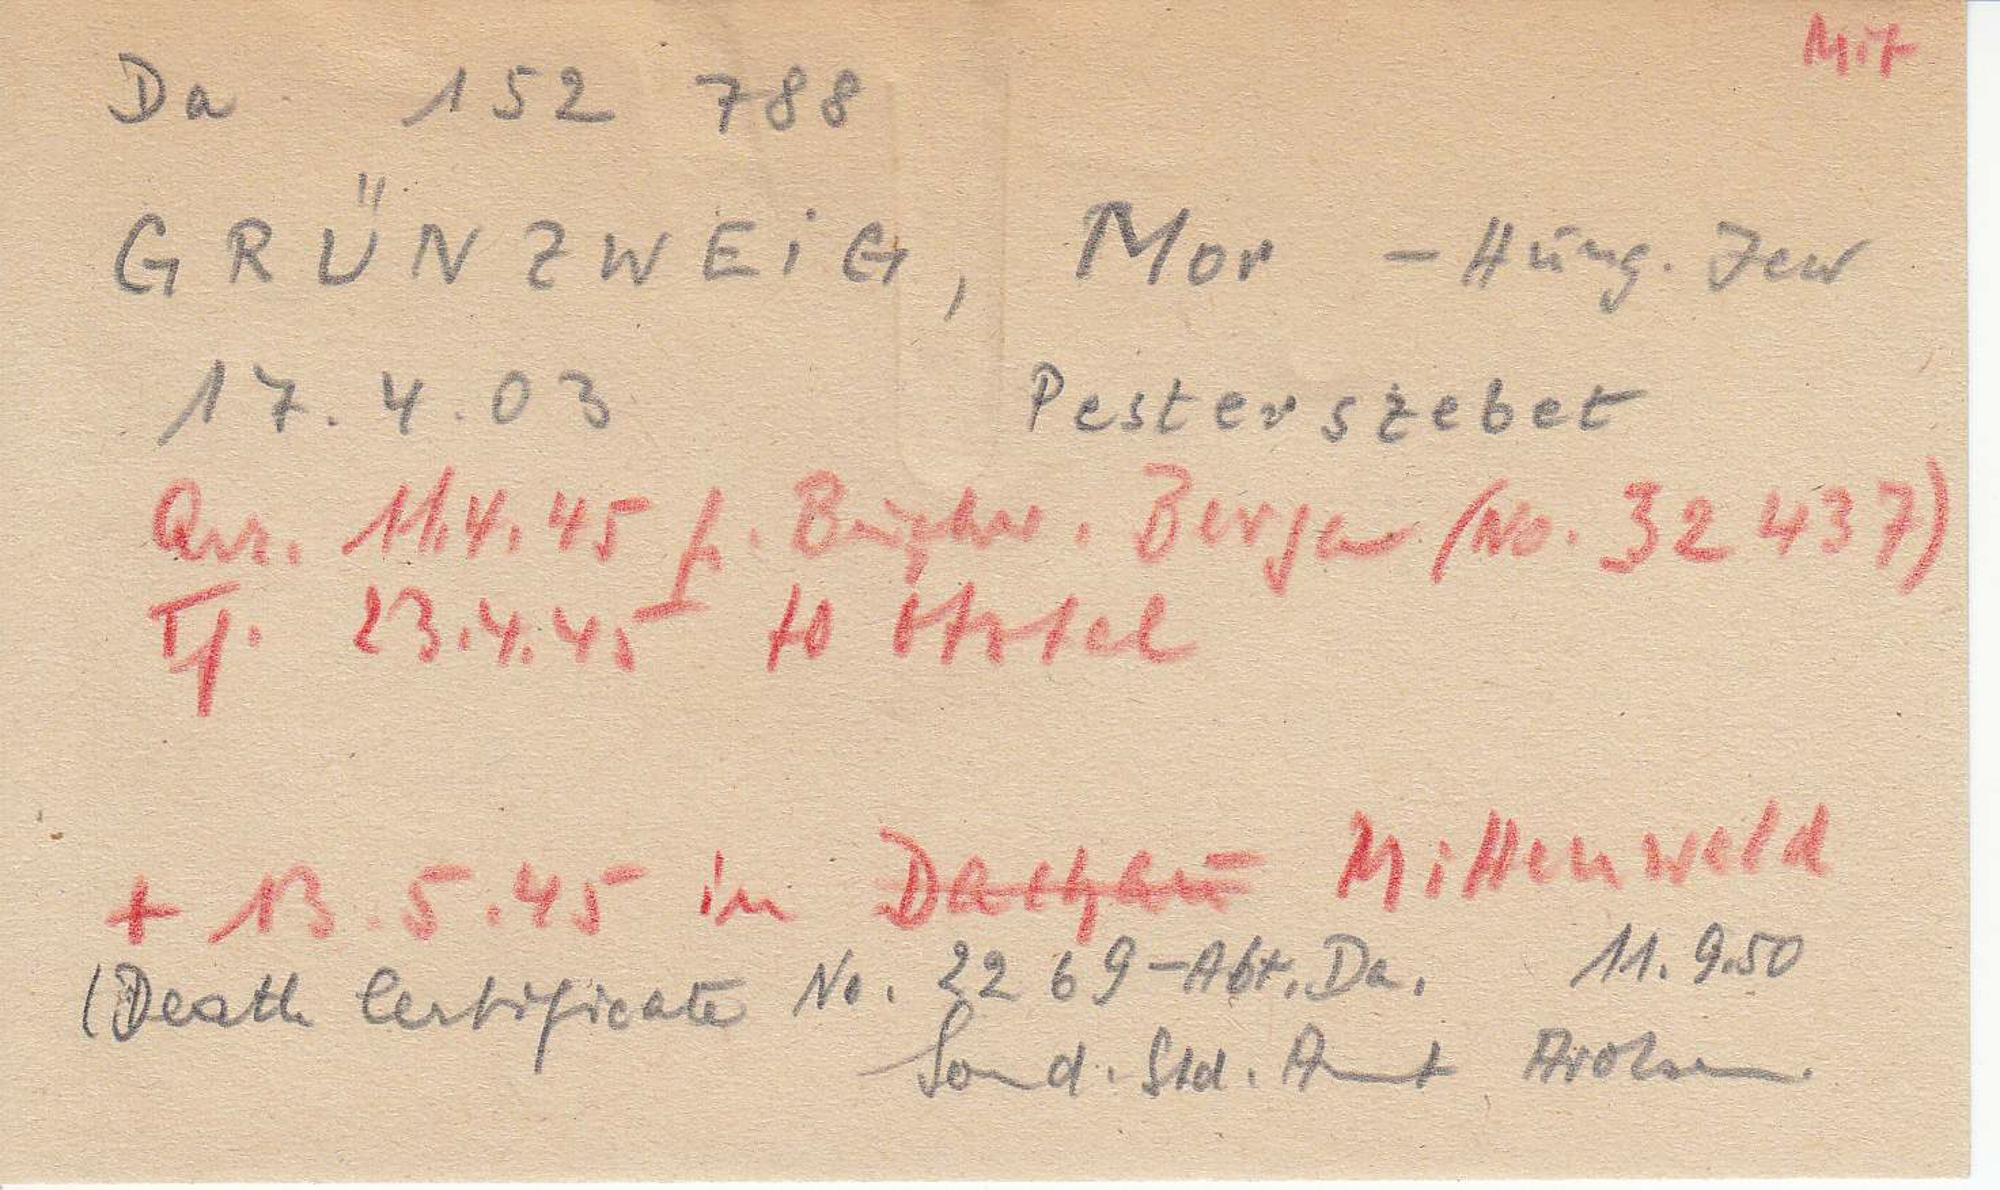 Mit
Da 152 788
GRÜNZWEiG, Mor - Hung. Jew
17.4.03 Pesterszebet
Arr. 11.4.45 f. Buchw. (No. 32 437)
Tf. 23.4.45 to
+ 13.5.45 in Dachau Mittenwald
(Death Certificate No. 2269-Abt. Da. 11.9.50
Sond. Std. Amt Arolsen.